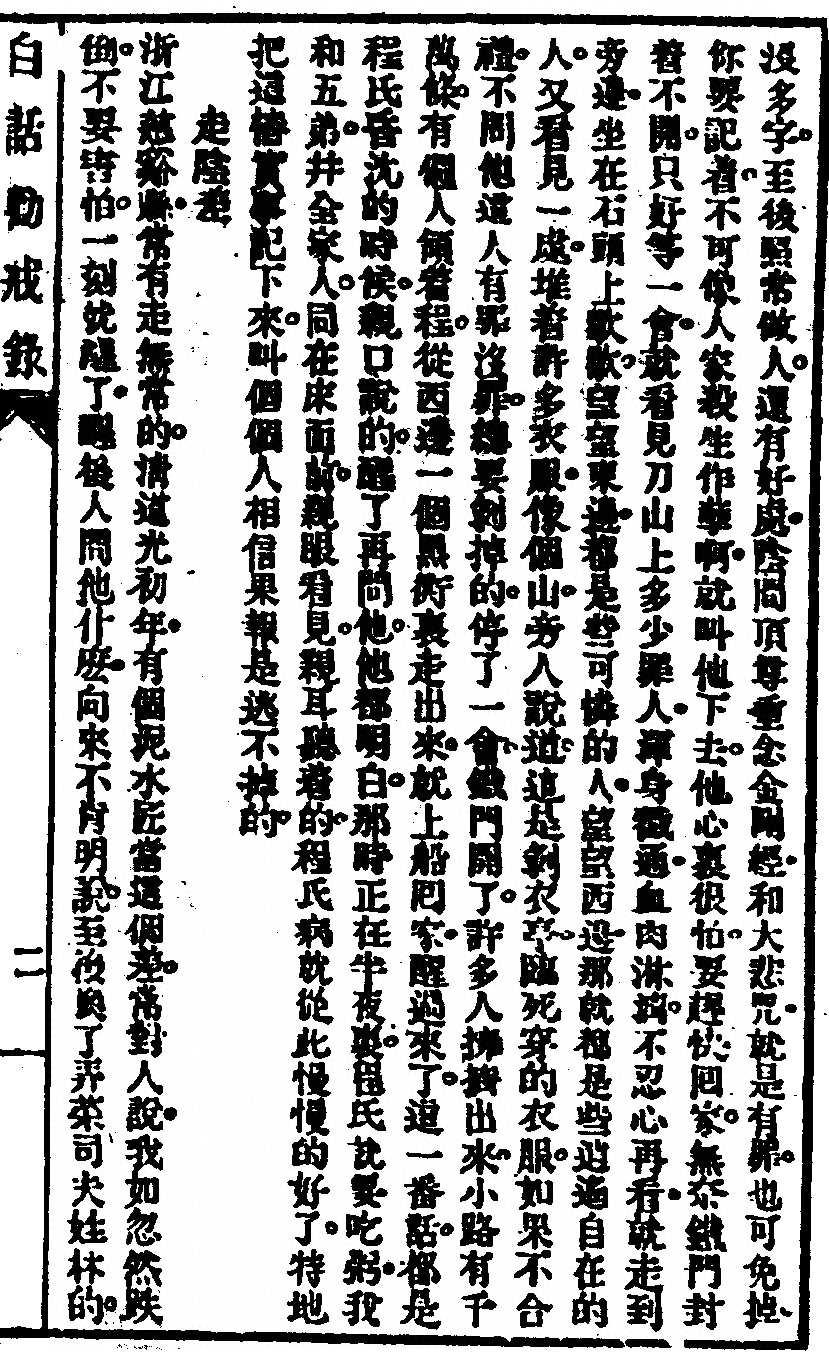 没多字至後照常做人還有好處陰間頂尊重念金剛經和大悲咒就是有罪也可免掉
你要記着不可像人家殺生作孽啊就叫他下去他心裏很怕要趕快囘家無奈鐵門封
着不開只好等一會就看見刀山上多少罪人渾身戳通血肉淋漓不忍心再看就走到
旁邊坐在石頭上歇歇望望東邊都是些可憐的人望望西邊那就都是些逍遙自在的
人又看見一處堆着許多衣服像個山旁人說道這是剝衣亭臨死穿的衣服如果不合
禮不問他這人有罪沒罪總要剝掉的停了一會鐵門開了許多人擁擠出來小路有千
萬條有個人領着程從西邊一個黑衖裏走出來就上船囘家醒過來了這一番話都是
程氏昏沈的時候親口說的醒了再問他他都明白那時正在半夜裏程氏就要吃粥我
和五弟幷全家人同在床面前親眼看見親耳聽着的程氏病就從此慢慢的好了特地
把這樁實事記下來叫個個人相信果報是逃不掉的
走陰差
浙江慈谿縣常有走無常的淸道光初年有個泥水匠當這個差常對人說我如忽然跌
倒不要害怕一刻就醒了醒後人問他什麽向來不肯明說至後換了弄菜司夫姓林的
白話勸戒錄
二